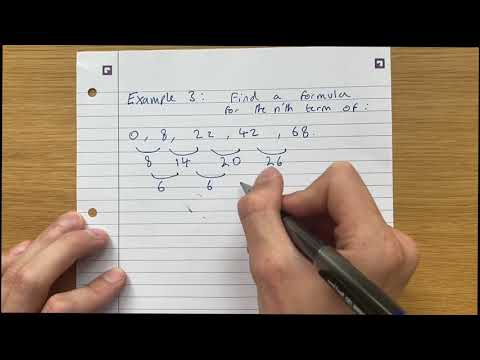 Example 3: Find a formula
for the n'th term of:
0, 8, 22, 42, 68.
8 14 20 26
6 6